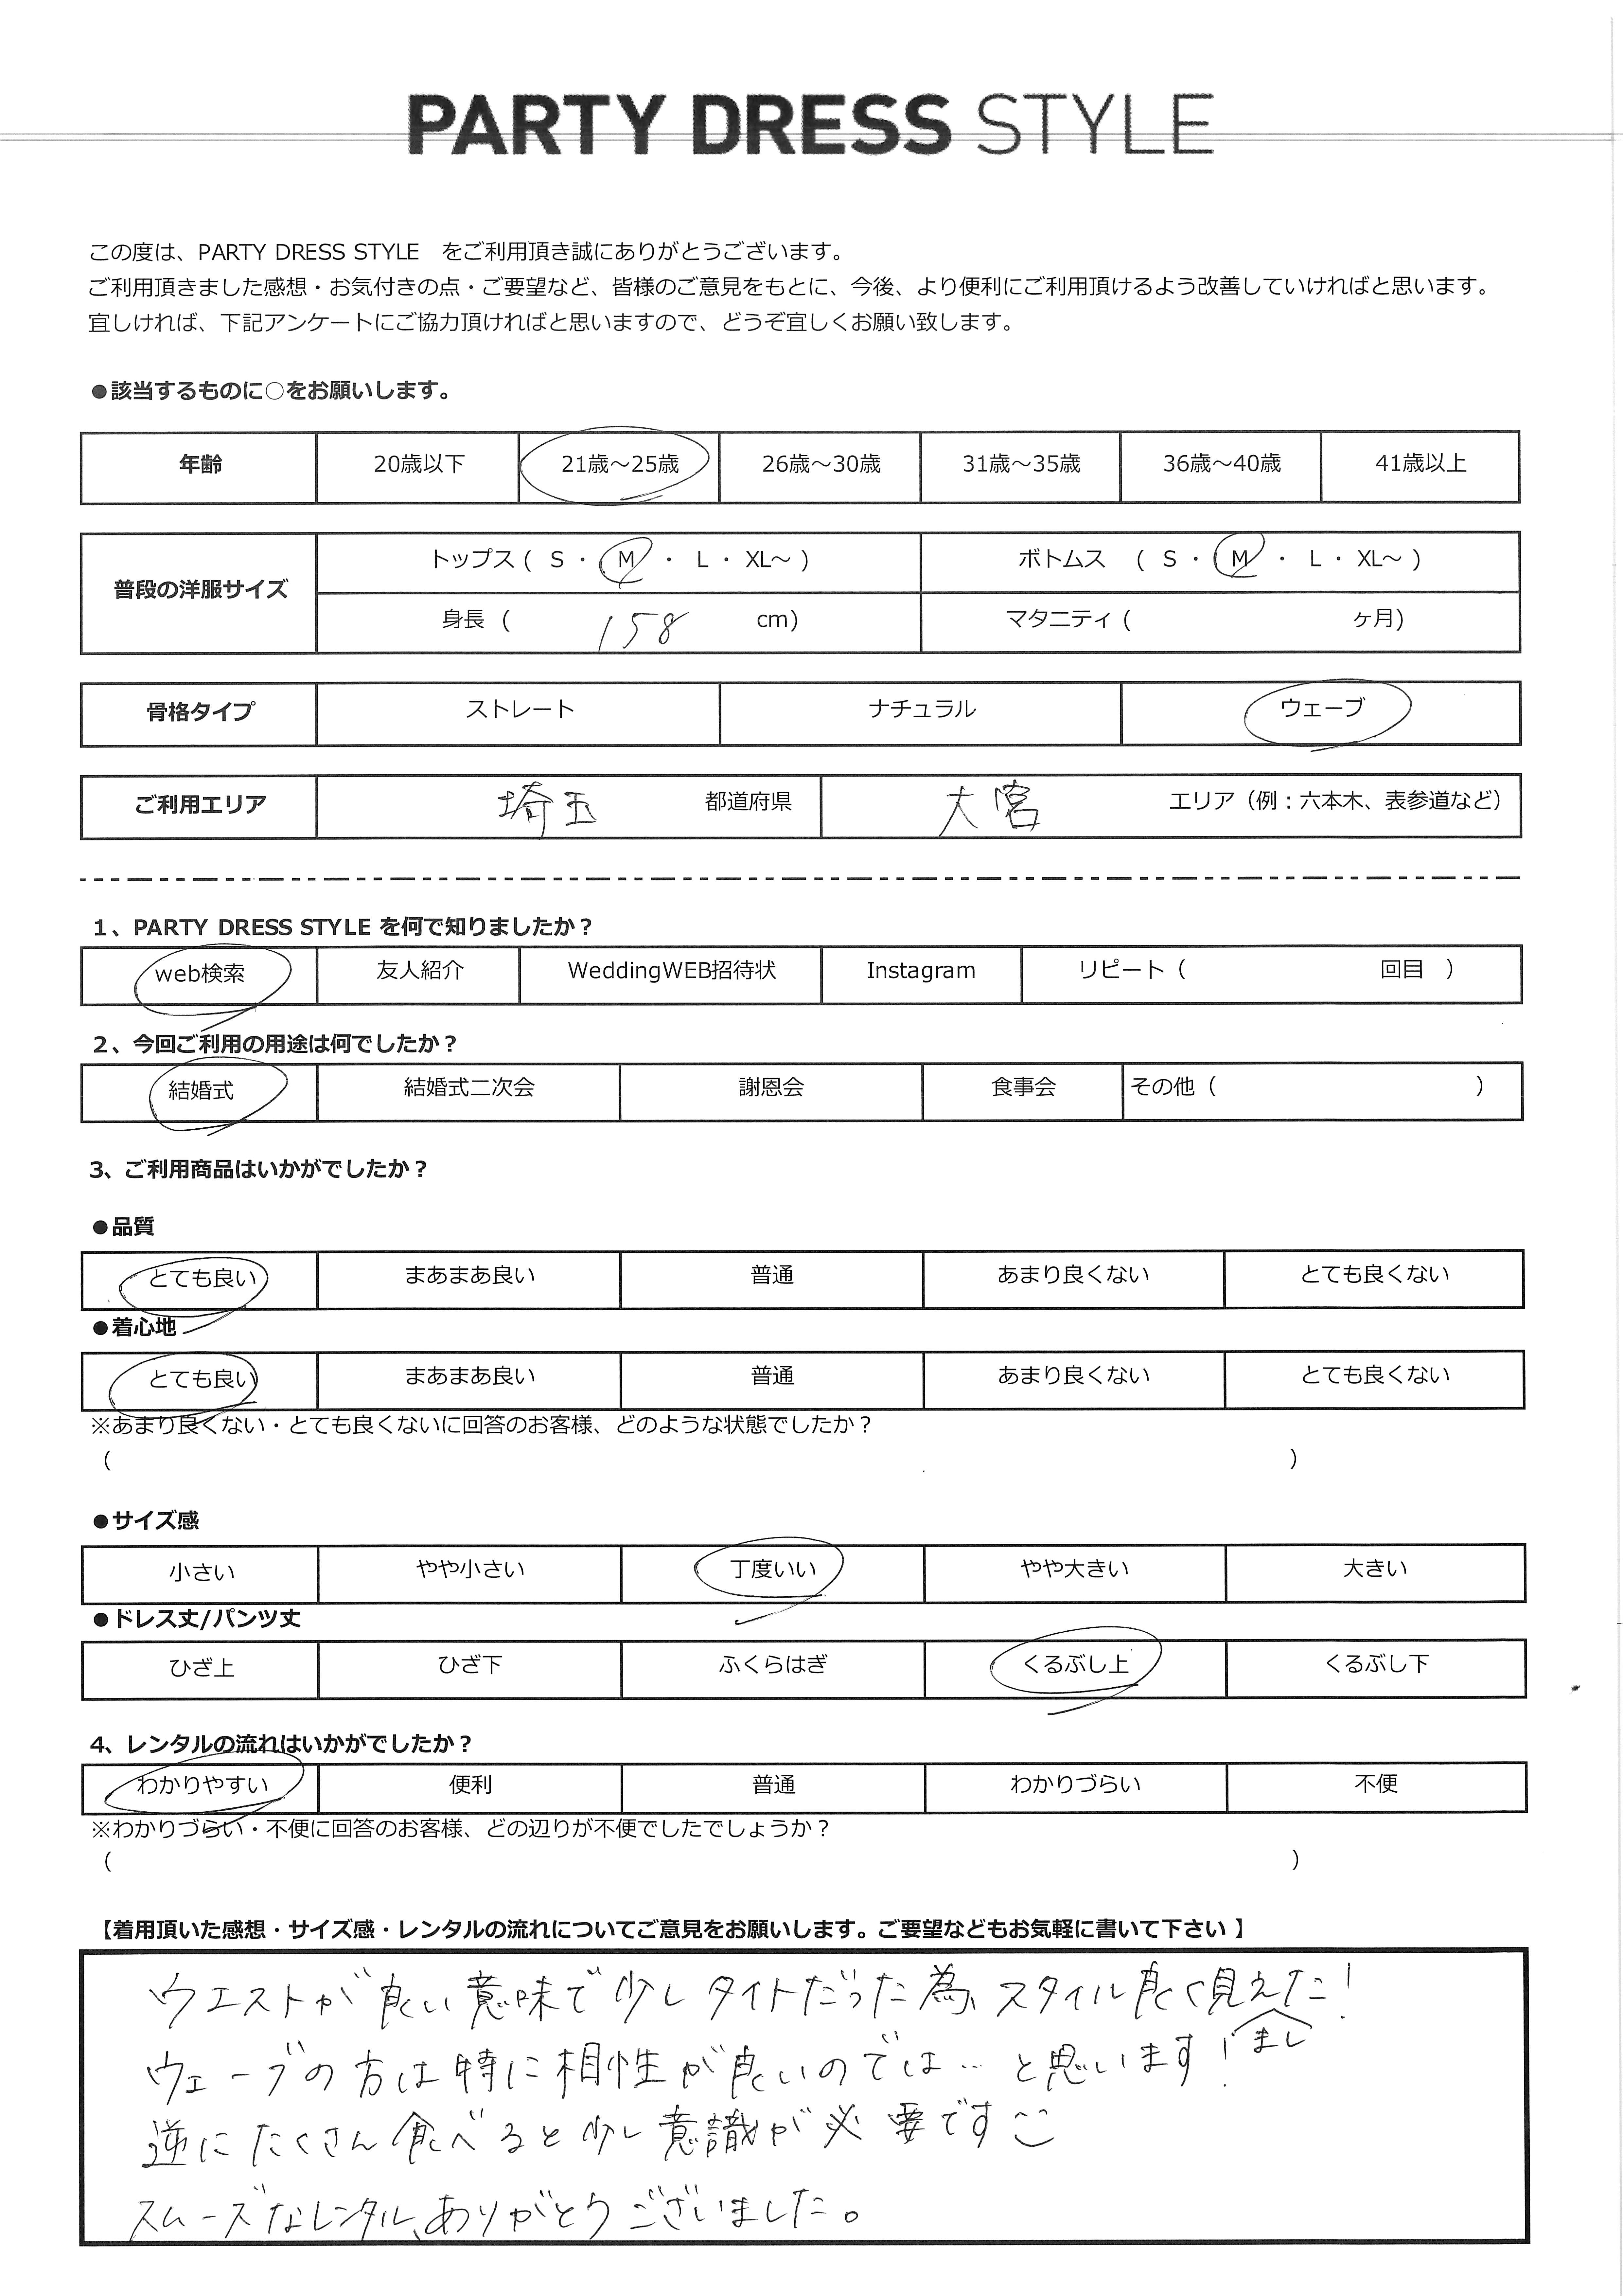 PARTY DRESS STYLE
この度は、PARTY DRESS STYLE をご利用頂き誠にありがとうございます。
ご利用頂きました感想・お気付きの点・ご要望など、皆様のご意見をもとに、今後、より便利にご利用頂けるよう改善していければと思います。
宜しければ、下記アンケートにご協力頂ければと思いますので、どうぞ宜しくお願い致します。
●該当するものに○をお願いします。
年齢 20歳以下 21歳～25歳 26歳～30歳 31歳～35歳 36歳～40歳 41歳以上
普段の洋服サイズ
トップス ( S ・ M ・ L ・ XL～ ) ボトムス ( S ・ M ・ L ・ XL～ )
身長 ( 158 cm) マタニティ ( ヶ月)
骨格タイプ ストレート ナチュラル ウェーブ
ご利用エリア 埼玉 都道府県 大宮 エリア（例：六本木、表参道など）
1、PARTY DRESS STYLE を何で知りましたか？
web検索 友人紹介 WeddingWEB招待状 Instagram リピート（ 回目 ）
2、今回ご利用の用途は何でしたか？
結婚式 結婚式二次会 謝恩会 食事会 その他（ ）
3、ご利用商品はいかがでしたか？
●品質
とても良い まあまあ良い 普通 あまり良くない とても良くない
●着心地
とても良い まあまあ良い 普通 あまり良くない とても良くない
※あまり良くない・とても良くないに回答のお客様、どのような状態でしたか？
( )
●サイズ感
小さい やや小さい 丁度いい やや大きい 大きい
●ドレス丈/パンツ丈
ひざ上 ひざ下 ふくらはぎ くるぶし上 くるぶし下
4、レンタルの流れはいかがでしたか？
わかりやすい 便利 普通 わかりづらい 不便
※わかりづらい・不便に回答のお客様、どの辺りが不便でしたでしょうか？
( )
【着用頂いた感想・サイズ感・レンタルの流れについてご意見をお願いします。ご要望などもお気軽に書いて下さい 】
ウエストが良い意味で少しタイトだった為、スタイル良く見えた！
まし
ウェーブの方は特に相性が良いのでは… と思います！
逆にたくさん食べると少し意識が必要です
スムーズなレンタル、ありがとうございました。